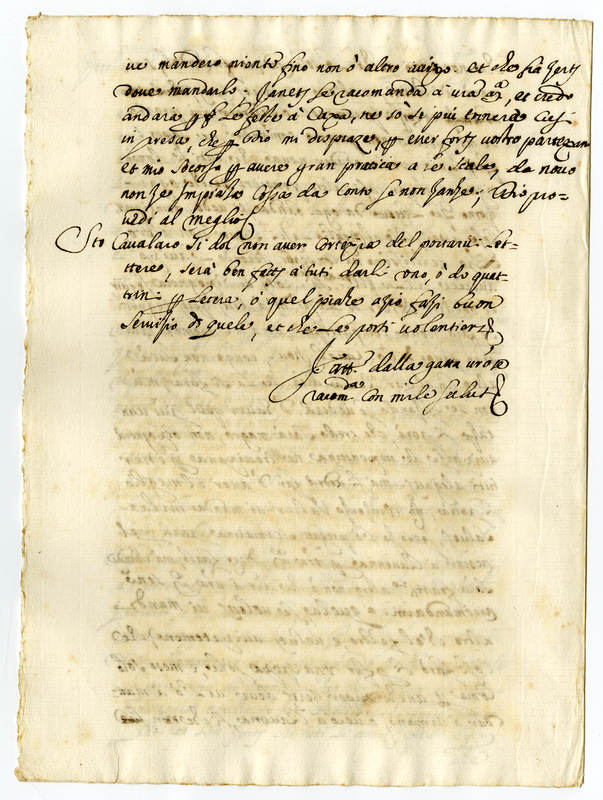 ve mandero niente fino non ò altro aviso. et che sia zerto
dove mandarlo. Janeto se racomanda à vra, et credo
andaria p le feste à Caxa, ne so si più tornera
in presa, che p Dio mi dispiaze, p eser forti vostro partezan
et mio Socorso p avere gran pratica a le Scale, da novo
non se Cossa da Conto se non Dio pro-
vedi al meglio
Sto Cavalaro si dol non aver Cortexia del portarvi let-
ttere, sera ben fatto a tuti darli uno, ò do quat-
trini p letera, ò quel piaze azio fazi buon
Servisio di quele, et che le porti volentieri
dalla gatta
racomda con mile salut